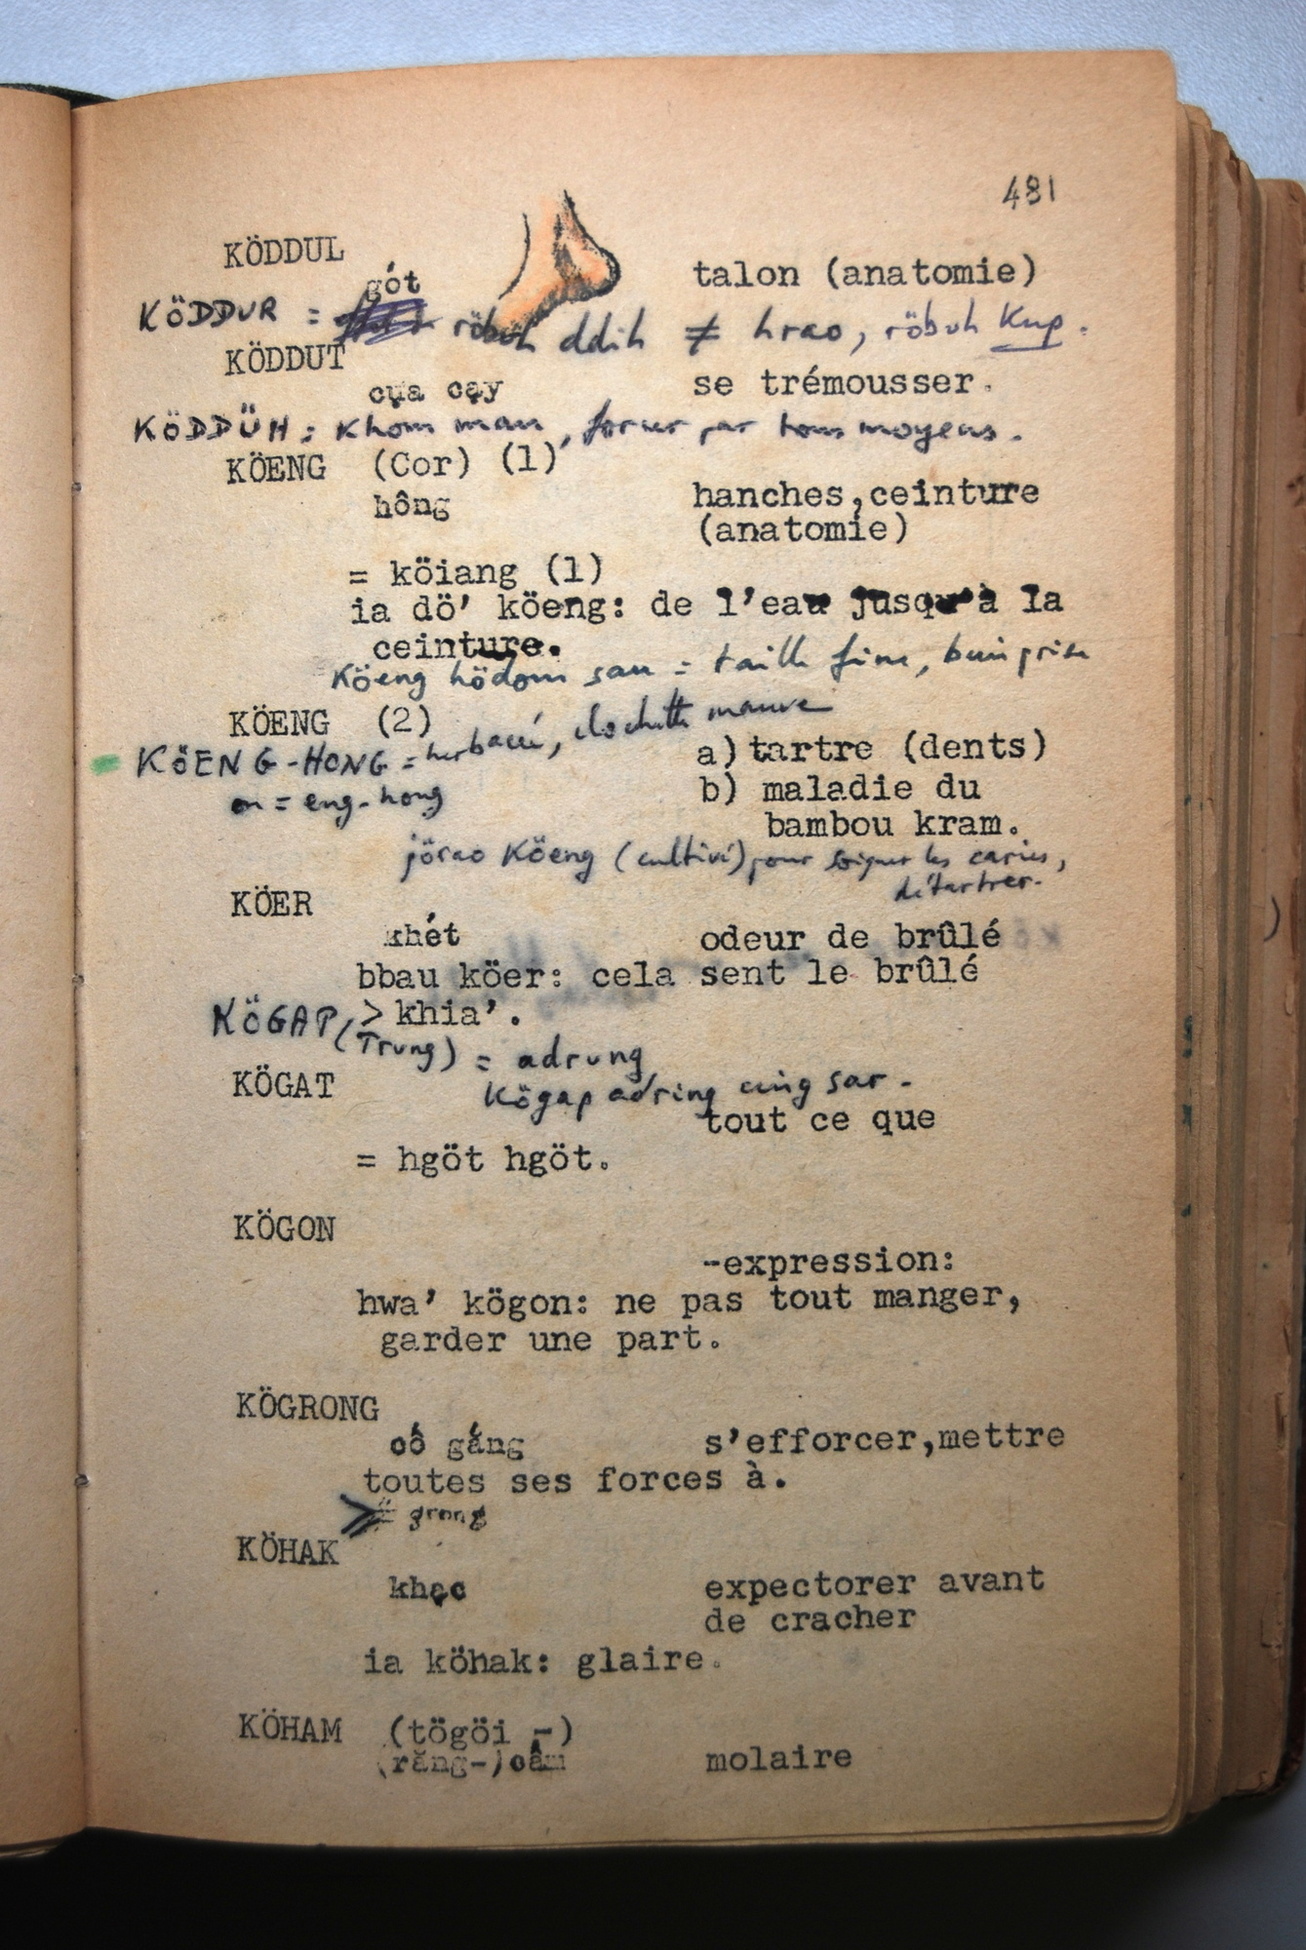 481
KÖDDUL
gót talon (anatomie)
KÖDDUR = röbuh ddih ≠ hrao, röbuh Kup.
KÖDDUT
cụa cạy se trémousser.
KÖDDÜH : Khom man, forcer par tous moyens.
KÖENG (Cor) (1)
hông hanches,ceinture
(anatomie)
= köiang (1)
ia dö' köeng: de l'eau jusqu'à la
ceinture.
Köeng hödom san = taille fine, bien prise
KÖENG (2)
KÖENG-HONG = herbacé, clochette mauve
a) tartre (dents)
on = eng-hong
b) maladie du
bambou kram.
jörao Köeng (cultivé) pour soigner les caries,
détartrer.
KÖER
khét odeur de brûlé
bbau köer: cela sent le brûlé
> khia'.
KÖGAP (Trung) = adrung
Kögap adring cing sar.
KÖGAT
tout ce que
= hgöt hgöt.
KÖGON
-expression:
hwa' kögon: ne pas tout manger,
garder une part.
KÖGRONG
cố gắng s'efforcer,mettre
toutes ses forces à.
> grong
KÖHAK
khạc expectorer avant
de cracher
ia köhak: glaire.
KÖHAM (tögöi -)
(răng-)cấm molaire